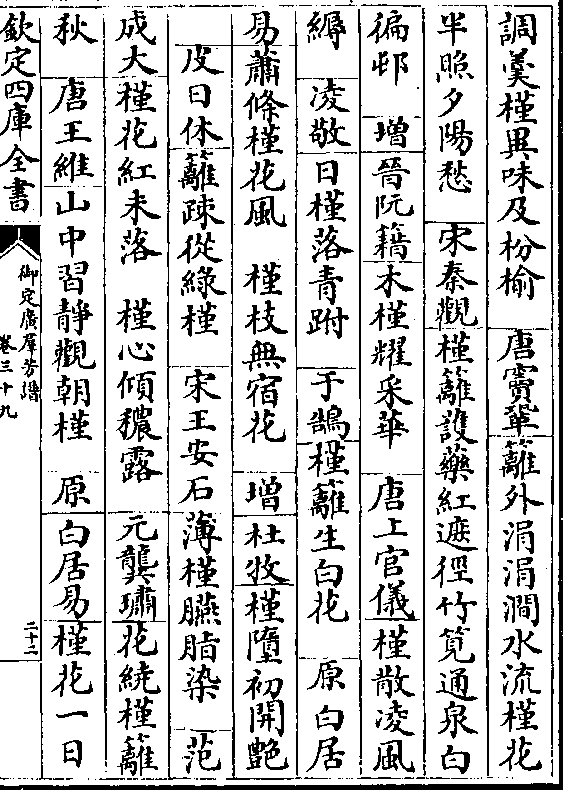 調羮槿異味及枌榆　唐竇鞏籬外涓涓澗水流槿花
半照夕陽愁　宋秦觀槿籬護藥紅遮徑竹筧通泉白
徧邨　增晉阮籍木槿耀采華　唐上官儀槿散凌風
縟　凌敬日槿落青跗　于鵠槿籬生白花　原白居
易蕭條槿花風　槿枝無宿花　增杜牧槿墮初開艷
皮日休籬疎從綠槿　宋王安石薄槿臙脂染　范
成大槿花紅未落　槿心傾穠露　元龔璛花繞槿籬
秋　唐王維山中習靜觀朝槿　原白居易槿花一日
欽定四庫全書
御定廣羣芳譜
卷三十九
二十二